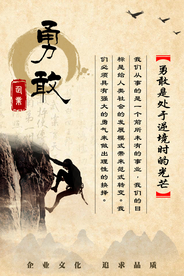 勇敢
企业
【勇敢是处于逆境时的光芒】
我们从事的是一个前所未有的事业，我们的目
标是给人类社会的发展模式带来范式转变。我
们必须具有强大的勇气来做出理性的抉择。
企业文化 追求品质